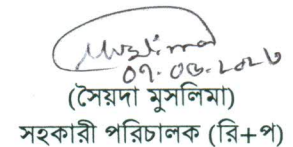 Muslima
০৭.০৬.২০২৩
(সৈয়দা মুসলিমা)
সহকারী পরিচালক (রি+প)